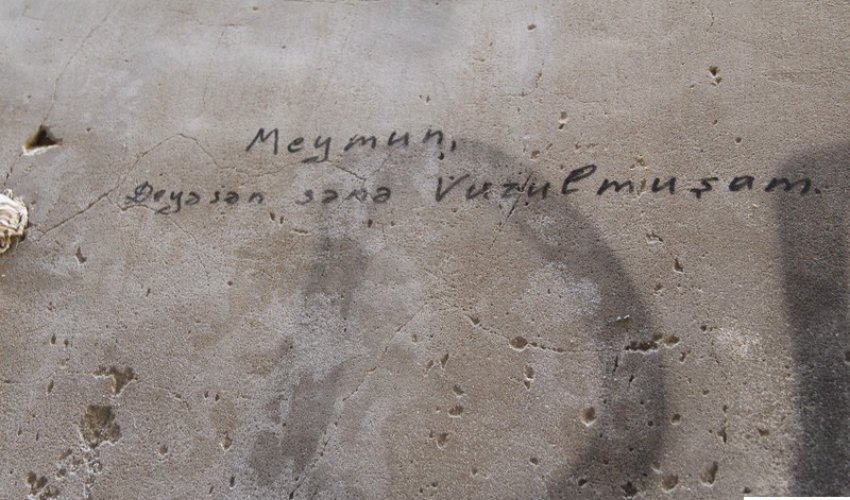 Meymun,
Deyəsən sənə Vurulmuşam.